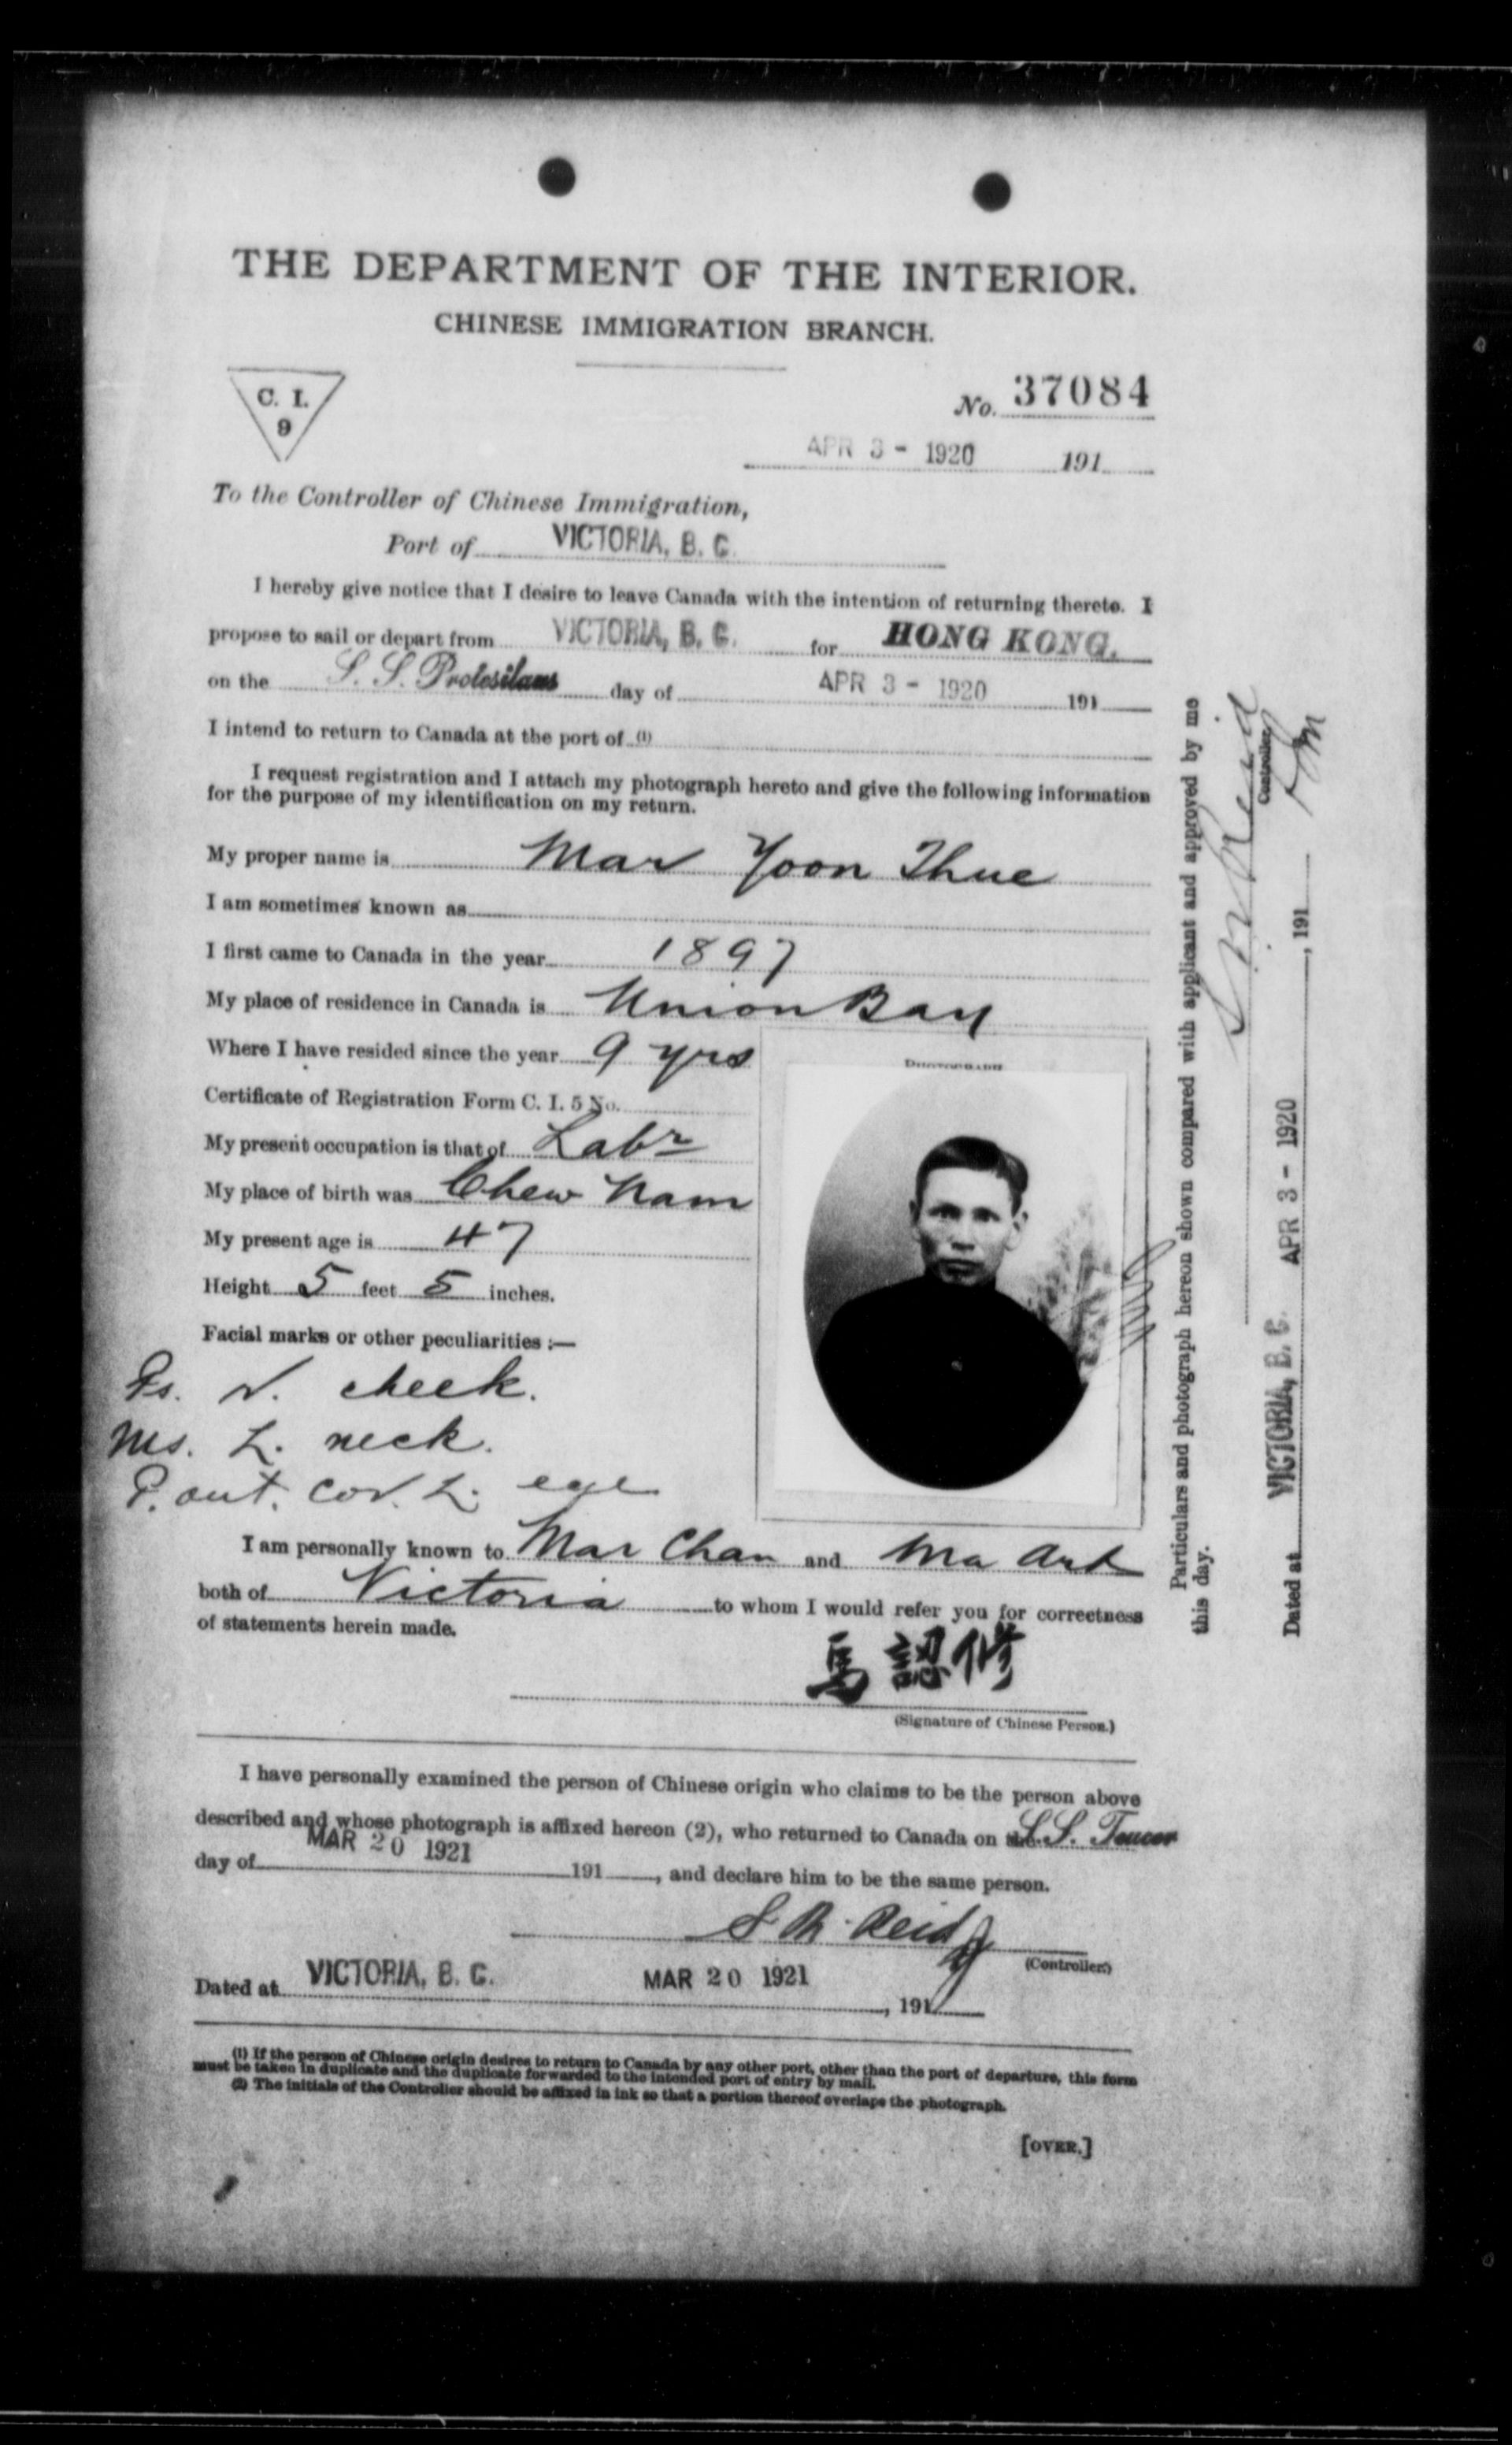 THE DEPARTMENT OF THE INTERIOR.
CHINESE IMMIGRATION BRANCH.
C. I.
9
No. 37084
APR 3 - 1920 191
To the Controller of Chinese Immigration,
Port of VICTORIA, B. C.
I hereby give notice that I desire to leave Canada with the intention of returning thereto. I
propose to sail or depart from VICTORIA, B. C. for HONG KONG.
on the S. S. Protesilaus day of APR 3 - 1920 191
I intend to return to Canada at the port of (1)
I request registration and I attach my photograph hereto and give the following information
for the purpose of my identification on my return.
My proper name is Mar Yoon Thue
I am sometimes known as
I first came to Canada in the year 1897
My place of residence in Canada is Union Bay
Where I have resided since the year 9 yrs
PHOTOGRAPH
Certificate of Registration Form C. I. 5 No.
My present occupation is that of Labr
My place of birth was Chew Nam
My present age is 47
Height 5 feet 5 inches.
Facial marks or other peculiarities :—
Ps. r. cheek.
Ms. L. neck.
P. out. cor. L. eye
I am personally known to Mar Chan and Ma
both of Victoria to whom I would refer you for correctness
of statements herein made.
馬認修
(Signature of Chinese Person.)
I have personally examined the person of Chinese origin who claims to be the person above
described and whose photograph is affixed hereon (2), who returned to Canada on the S.S. Teucer
day of MAR 20 1921 191, and declare him to be the same person.
S. N. Reid
(Controller.)
Dated at VICTORIA, B. C. MAR 20 1921, 191
(1) If the person of Chinese origin desires to return to Canada by any other port, other than the port of departure, this form
must be taken in duplicate and the duplicate forwarded to the intended port of entry by mail.
(2) The initials of the Controller should be affixed in ink so that a portion thereof overlaps the photograph.
[OVER.]
Particulars and photograph hereon shown compared with applicant and approved by me
this day.
Reid
Controller.
Dated at VICTORIA, B. C. APR 3 - 1920, 191